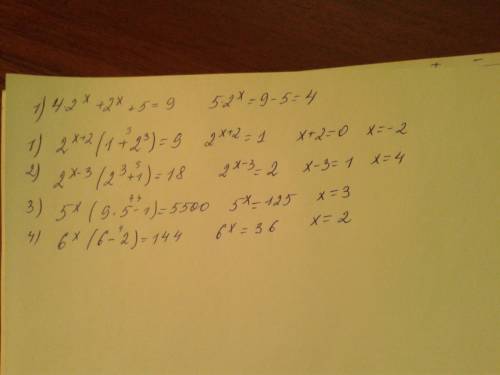 1) 4·2ˣ+2ˣ+5=9 5·2ˣ=9-5=4
1) 2ˣ⁺²(1+2³)=9 2ˣ⁺²=1 x+2=0 x=-2
2) 2ˣ⁻³(2³+1)=18 2ˣ⁻³=2 x-3=1 x=4
3) 5ˣ(9·5-1)=5500 5ˣ=125 x=3
4) 6ˣ(6-2)=144 6ˣ=36 x=2